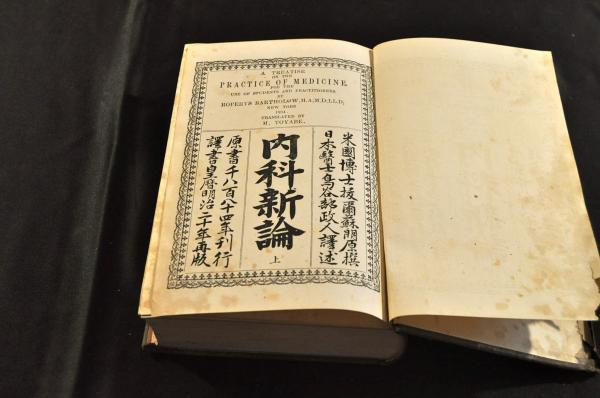 A TREATISE
ON THE
PRACTICE OF MEDICINE,
FOR THE
USE OF STUDENTS AND PRACTITIONERS
BY
ROPERTS BARTHOLOW, M.A, M.D; LL.D;
NEW YORK
1884
TRANSLATED BY
M. TOYABE.
米國博士抜爾蘇朗原撰
日本醫士鳥谷部政人譯述
内科新論
上
原書千八百八十四年刊行
譯書皇暦明治二十年再版